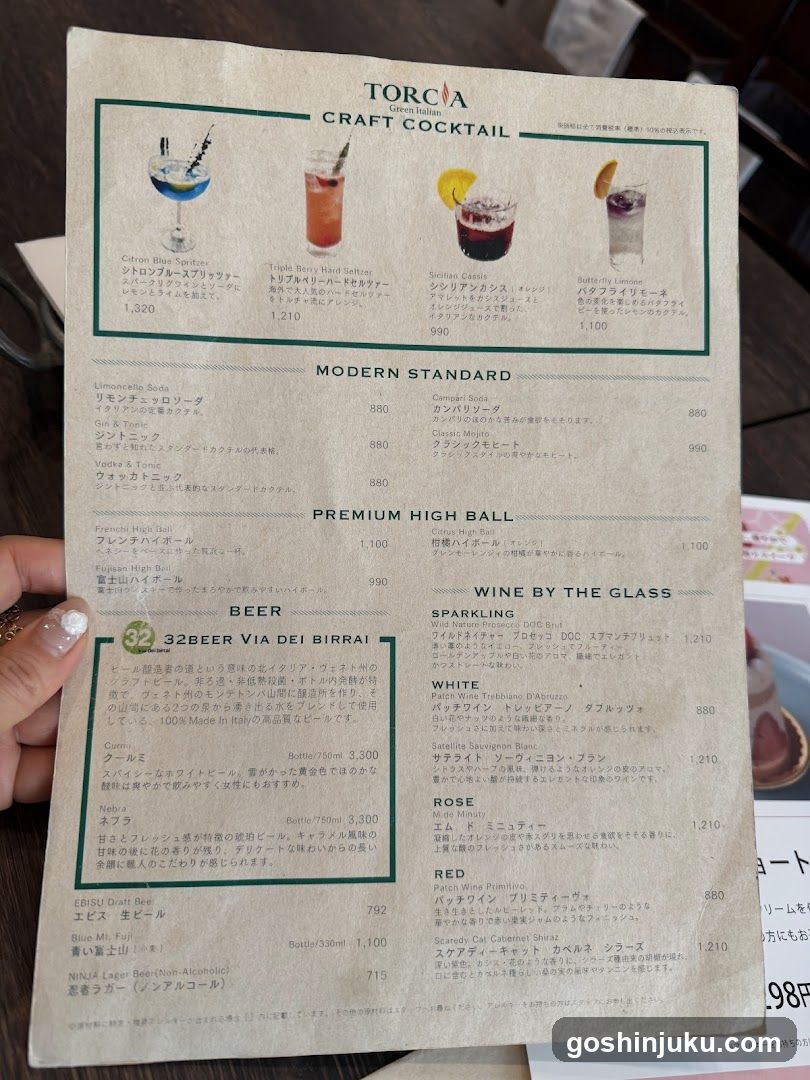 TORCIA
Green Italian
CRAFT COCKTAIL
Citron Blue Spritzer
シトロンブルースプリッツァー
スパークリグワインとソーダに
レモンとライムを加えて。
1,320
Triple Berry Hard Seltzer
トリプルベリーハードセルツァー
海外で大人気のハードセルツァー
をトルチャ流にアレンジ。
1,210
Sicilian Cassis
シシリアンカシス [オレンジ]
アマレットをカシスジュースと
オレンジジュースで割った、
イタリアンなカクテル。
990
Butterfly Limone
バタフライリモーネ
色の変化を楽しめるバタフライ
ピーを使ったレモンのカクテル。
1,100
MODERN STANDARD
Limoncello Soda
リモンチェッロソーダ 880
イタリアンの定番カクテル。
Gin & Tonic
ジントニック 880
言わずと知れたスタンダードカクテルの代表格。
Vodka & Tonic
ウォッカトニック 880
ジントニックと並ぶ代表的なスタンダードカクテル。
Campari Soda
カンパリソーダ 880
カンパリのほのかな苦みが食欲をそそります。
Classic Mojito
クラシックモヒート 990
クラシックスタイルの爽やかなモヒート。
PREMIUM HIGH BALL
Frenchi High Ball
フレンチハイボール 1,100
ヘネシーをベースに作った贅沢な一杯。
Fujisan High Ball
富士山ハイボール 990
富士山ウィスキーで作ったまろやかで飲みやすいハイボール。
Citrus High Ball
柑橘ハイボール [オレンジ] 1,100
グレンモーレンジィの柑橘が華やかに香るハイボール。
BEER
32
Via dei birrai
32BEER VIA DEI BIRRAI
ビール醸造者の道という意味の北イタリア・ヴェネト州の
クラフトビール。非ろ過・非低熱殺菌・ボトル内発酵が特
徴で、ヴェネト州のモンテトンバ山間に醸造所を作り、そ
の山間にある2つの泉から湧き出る水をブレンドして使用
している、100% Made In Italyの高品質なビールです。
Curmi
クールミ Bottle/750ml 3,300
スパイシーなホワイトビール。雪がかった黄金色でほのかな
酸味は爽やかで飲みやすく女性にもおすすめ。
Nebra
ネブラ Bottle/750ml 3,300
甘さとフレッシュ感が特徴の琥珀ビール。キャラメル風味の
甘味の後に花の香りが残り、デリケートな味わいからの長い
余韻に職人のこだわりが感じられます。
EBISU Draft Bee
エビス 生ビール 792
Blue Mt. Fuji
青い富士山 [小麦] Bottle/330ml 1,100
NINJA Lager Beer(Non-Alcoholic)
忍者ラガー（ノンアルコール） 715
WINE BY THE GLASS
SPARKLING
Wild Nature Prosecco DOC Brut
ワイルドネイチャー プロセッコ DOC スプマンテブリュット 1,210
淡い藁のようなイエロー。フレッシュでフルーティー
ゴールデンアップルや白い花のアロマ、繊細でエレガント
かつストレートな味わい。
WHITE
Patch Wine Trebbiano D'Abruzzo
パッチワイン トレッビアーノ ダブルッツォ 880
白い花やナッツのような繊細な香り。
フレッシュさに加えて味わい深さとミネラルが感じられます。
Satellite Sauvignon Blanc
サテライト ソーヴィニヨン・ブラン 1,210
シトラスやハーブの風味、弾けるようなオレンジの皮のアロマ。
豊かで心地よい酸が持続するエレガントな印象のワインです。
ROSE
M de Minuty
エム ド ミニュティー 1,210
凝縮したオレンジの皮や赤スグリを思わせる食欲をそそる香りに、
上質な酸のフレッシュさがあるスムーズな味わい。
RED
Patch Wine Primitivo
パッチワイン プリミティーヴォ 880
生き生きとしたルビーレッド。プラムやチェリーのような
華やかな香りで赤い果実ジャムのようなフィニッシュ。
Scaredy Cat Cabernet Shiraz
スケアディーキャット カベルネ シラーズ 1,210
深い紫色。カシス・花のような香りに、シラーズ種由来の胡椒が現れ、
口に含むとカベルネ種らしい桑の実の風味やタンニンを感じます。
98円
goshinjuku.com